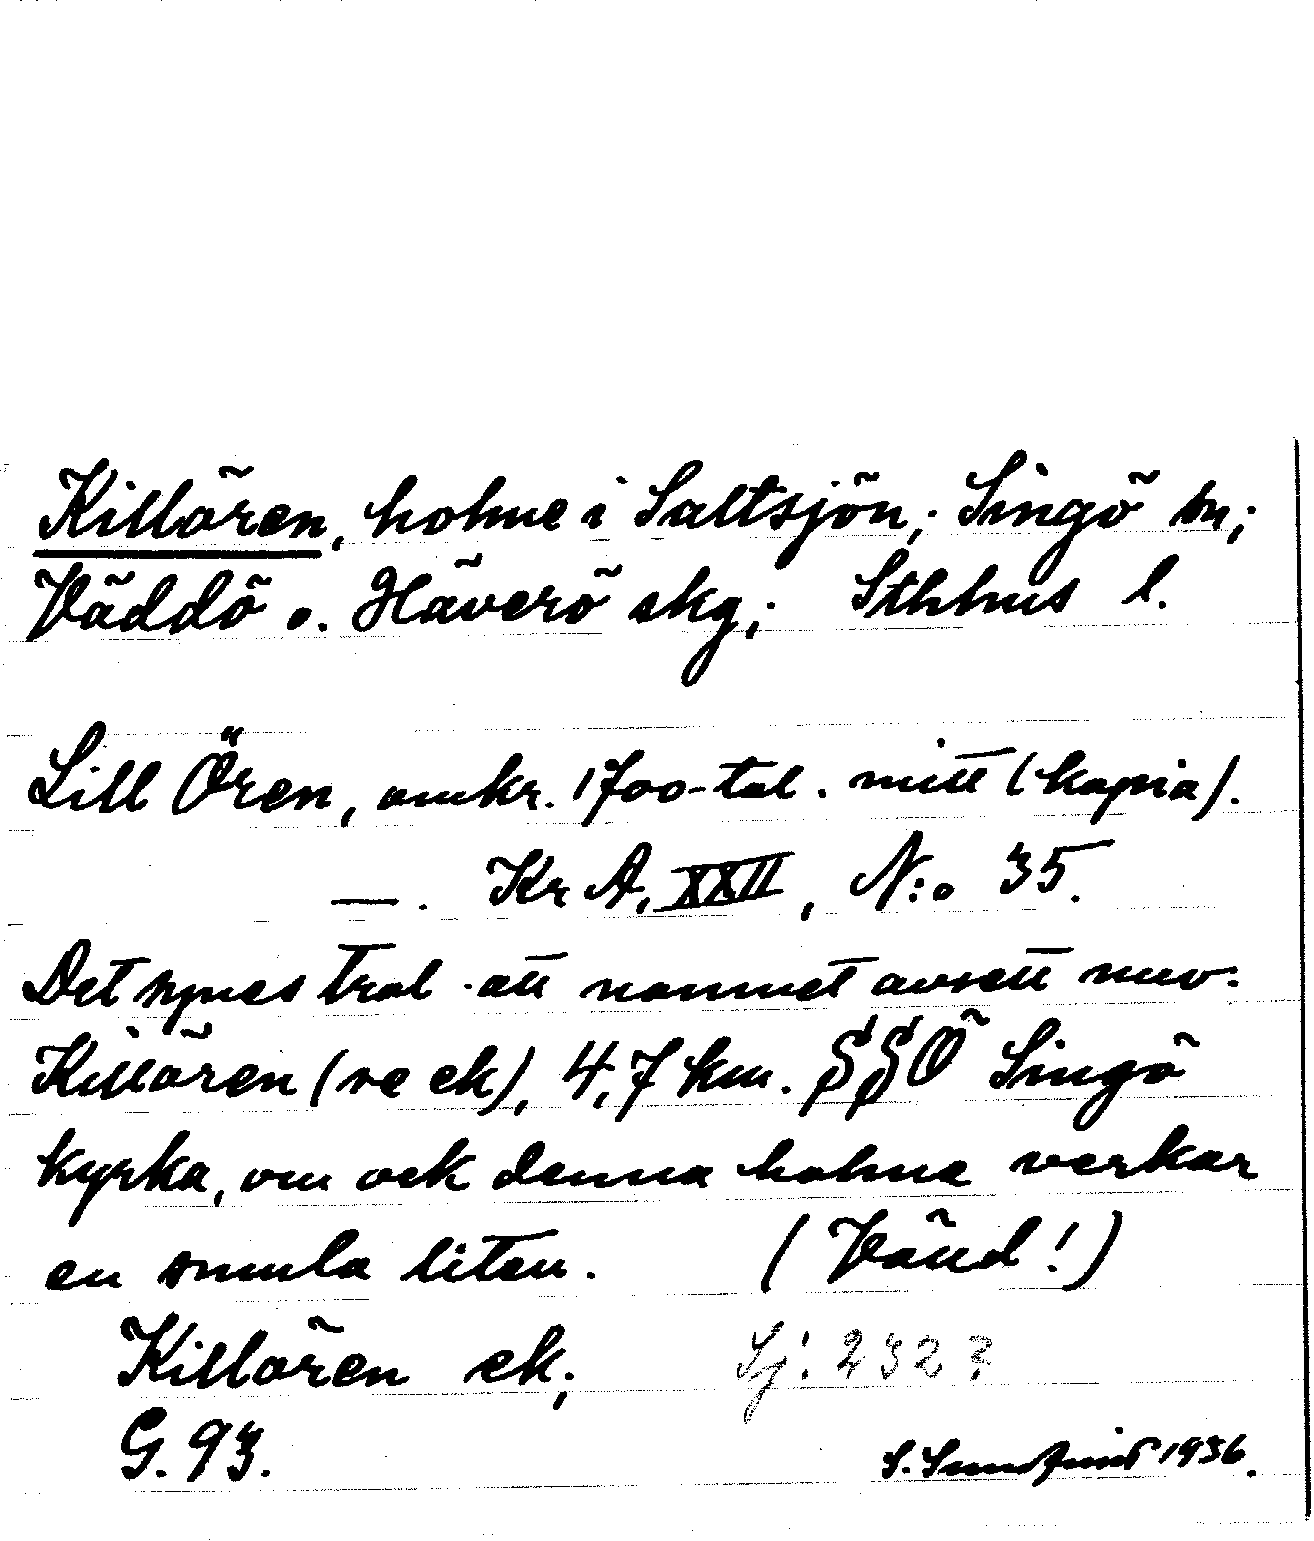 Killören, holme i Saltsjön; Singö sn;
Väddö o. Häverö skg; Sthlms l.
Lill Ören, omkr. 1700-tal. mitt (kopia).
—. Kr A, XXII, N:o 35.
Det synes trol. att namnet avsett nuv.
Killören (se ek), 4,7 km. SSÖ Singö
kyrka, om ock denna holme verkar
en smula liten. (Vänd!)
Killören ek; Sj. 232?
G. 93. S. Sundqvist 1936.